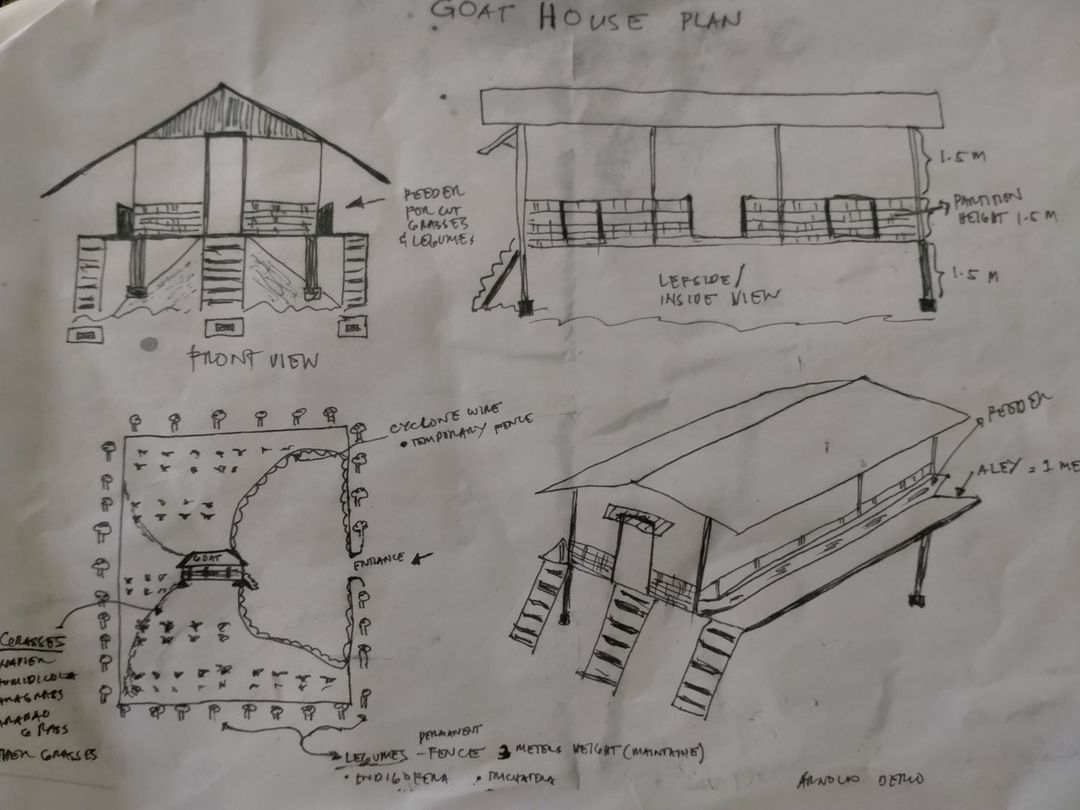 GOAT HOUSE PLAN
FEEDER
FOR CUT
GRASSES
& LEGUMES
FRONT VIEW
1.5 M
PARTITION
HEIGHT 1.5 M
1.5 M
LEFSIDE/
INSIDE VIEW
CYCLONE WIRE
• TEMPORARY FENCE
GOAT
ENTRANCE
GRASSES
NAPIER
HUMIDICOLA
PARAGRASS
GRASS
OTHER GRASSES
PERMANENT
LEGUMES - FENCE 3 METERS HEIGHT (MAINTAINE)
• INDIGOFERA • TRICHATERA
FEEDER
ALEY = 1 ME
ARNOLD